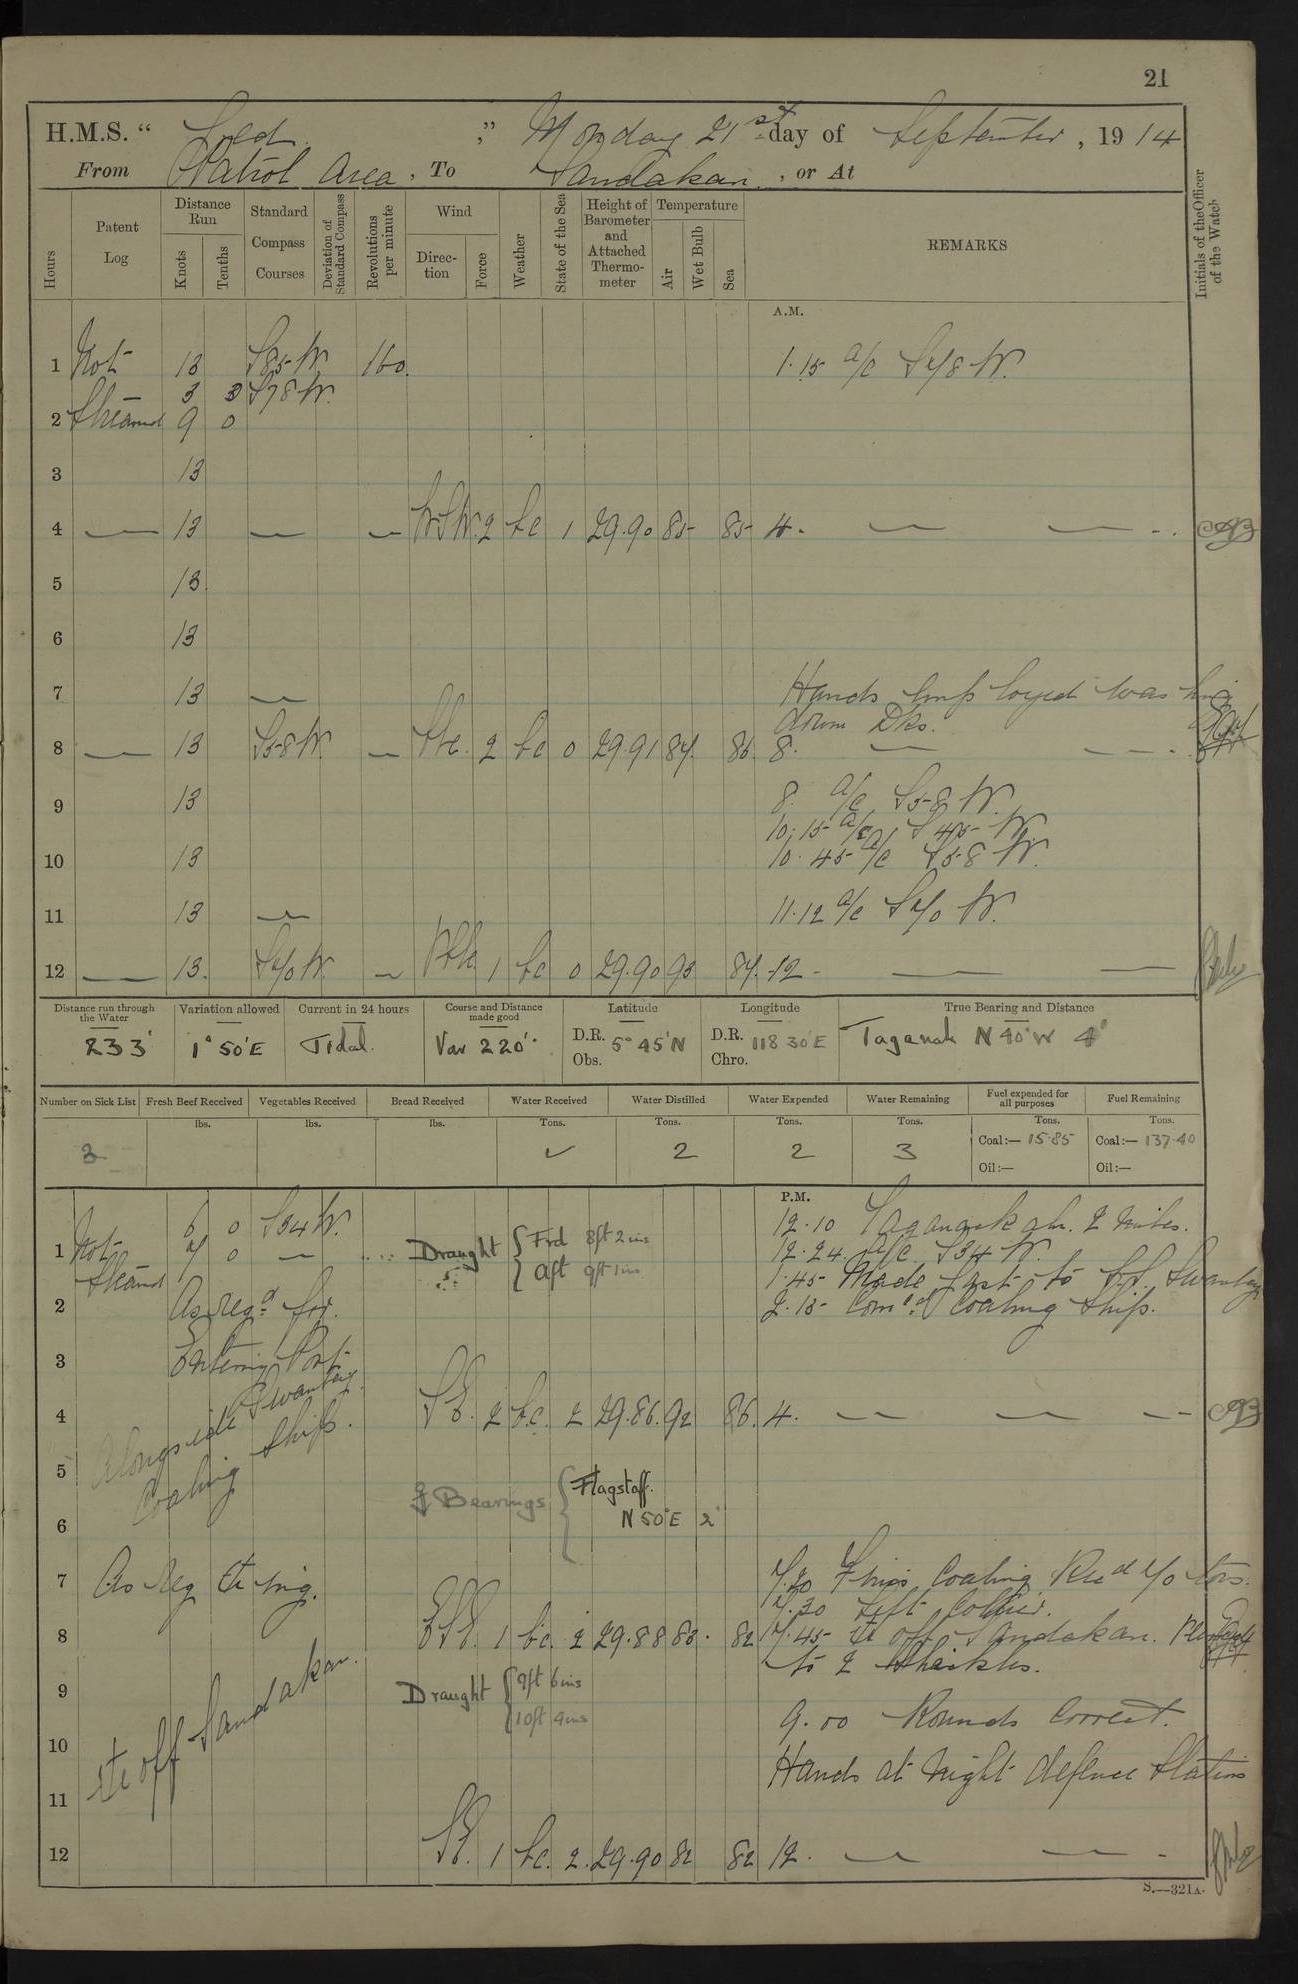 21
H.M.S. " Jed. " Monday 21st day of September, 1914
From Patrol Area, To Sandakan, or At
Hours
Patent Log
Distance Run
Knots
Tenths
Standard Compass Courses
Deviation of Standard Compass
Revolutions per minute
Wind
Direction
Force
Weather
State of the Sea
Height of Barometer and Attached Thermometer
Temperature
Air
Wet Bulb
Sea
REMARKS
Initials of the Officer of the Watch
A.M.
1 Not 13 S85W. 160. 1.15 a/c S78W.
3 3 S78W.
2 Streamed 9 0
3 13
4 — 13 — — WSW. 2 bc 1 29.90 85 85 4. — — - .
5 13.
6 13
7 13 — Hands employed washing
down Dks.
8 — 13 S58W. — 2 bc 0 29.91 84. 86. 8. — - - - .
9 13 8. a/c S58W.
10.15 a/c S45W.
10 13 10.45 a/c S58W.
11 13 — 11.12 a/c S70W.
12 — 13. S70W. — 1 bc 0 29.90 93 84. 12. — —
Distance run through the Water
233'
Variation allowed
1° 50'E
Current in 24 hours
Tidal.
Course and Distance made good
Var 220'.
Latitude
D.R. 5° 45'N
Obs.
Longitude
D.R. 118 30'E
Chro.
True Bearing and Distance
Taganak N 40°W 4'
Number on Sick List
3
Fresh Beef Received
lbs.
Vegetables Received
lbs.
Bread Received
lbs.
Water Received
Tons.
✓
Water Distilled
Tons.
2
Water Expended
Tons.
2
Water Remaining
Tons.
3
Fuel expended for all purposes
Tons.
Coal:— 15.85
Oil:—
Fuel Remaining
Tons.
Coal:— 137.40
Oil:—
P.M.
6 0 S34W. 12.10 Taganak abm. 2 miles.
1 Not 7 0 — Draught { Frd 8ft 2ins 12.24. a/c S34W.
Streamed aft 9ft 1in 1.45 Made fast to S.S. Swanley
2 As reqd for 2.15 Comcd Coaling Ship.
3 Entering Port
4 Alongside Swanley SE. 2 bc. 2 29.86. 92 86. 4. — — —
5 Coaling Ship.
Bearings { Flagstaff.
6 N 50°E 2'
7 As Req for ing. 7.20 Finis Coaling Recd 70 tons.
7.30 Left Collier.
8 ESE. 1 bc. 2 29.88 83. 82 7.45 off Sandakan.
to 2 Shackles.
9 Draught { 9ft 6ins
10ft 4ins
9.00 Rounds Correct.
10 off Sandakan.
Hands at Night defence Stations
11
12 SE. 1 bc. 2. 29.90 82 82 12. — — -
S.—321A.